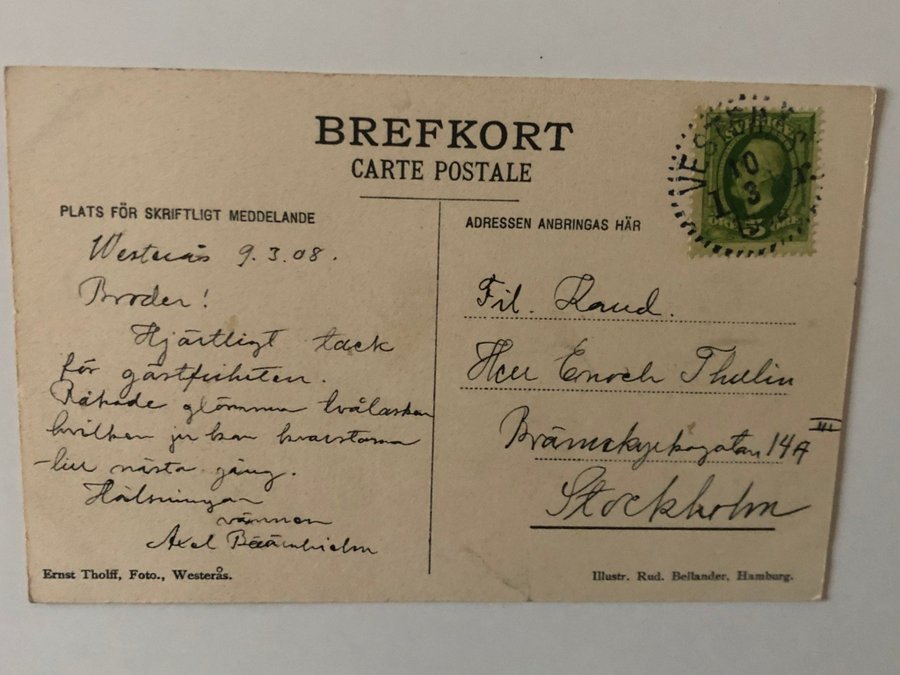 BREFKORT
CARTE POSTALE
PLATS FÖR SKRIFTLIGT MEDDELANDE
Westerås 9.3.08.
Broder!
Hjärtligt tack
för gästfriheten.
Råkade glömma tvålasken
hvilken ju kan kvarstanna
till nästa gång.
Hälsningar
vännen
Axel
Ernst Tholff, Foto., Westerås.
ADRESSEN ANBRINGAS HÄR
SVERIGE
10
3
5
Fil. Kand.
Herr Enoch Thulin
14A
III
Stockholm
Illustr. Rud. Beilander, Hamburg.